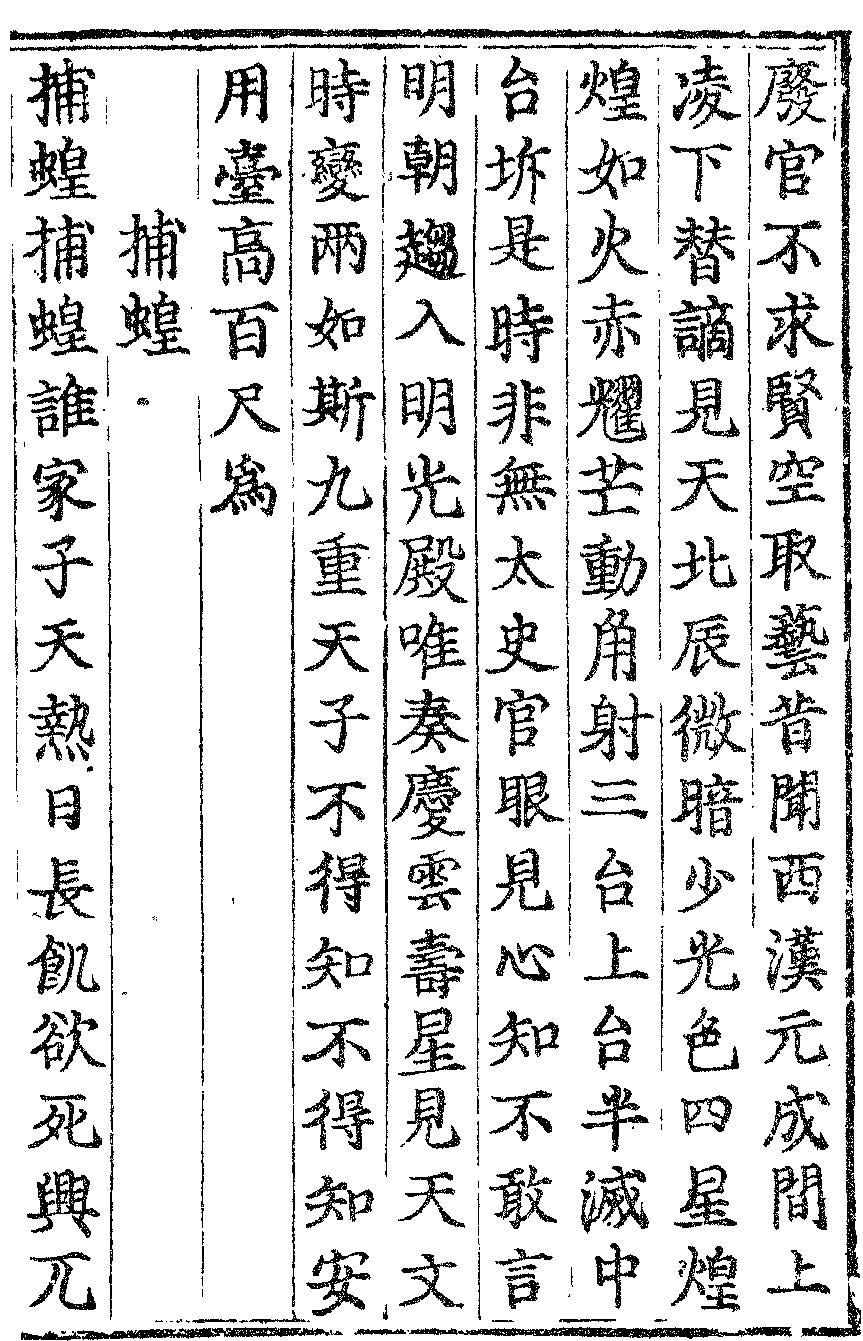 廢官不求賢空取藝昔聞西漢元成間上
凌下替謫見天北辰微暗少光色四星煌
煌如火赤耀芒動角射三台上台半滅中
台坼是時非無太史官眼見心知不敢言
明朝趨入明光殿唯奏慶雲壽星見天文
時變兩如斯九重天子不得知不得知安
用臺高百尺爲
捕蝗
捕蝗捕蝗誰家子天熱日長飢欲死興兀